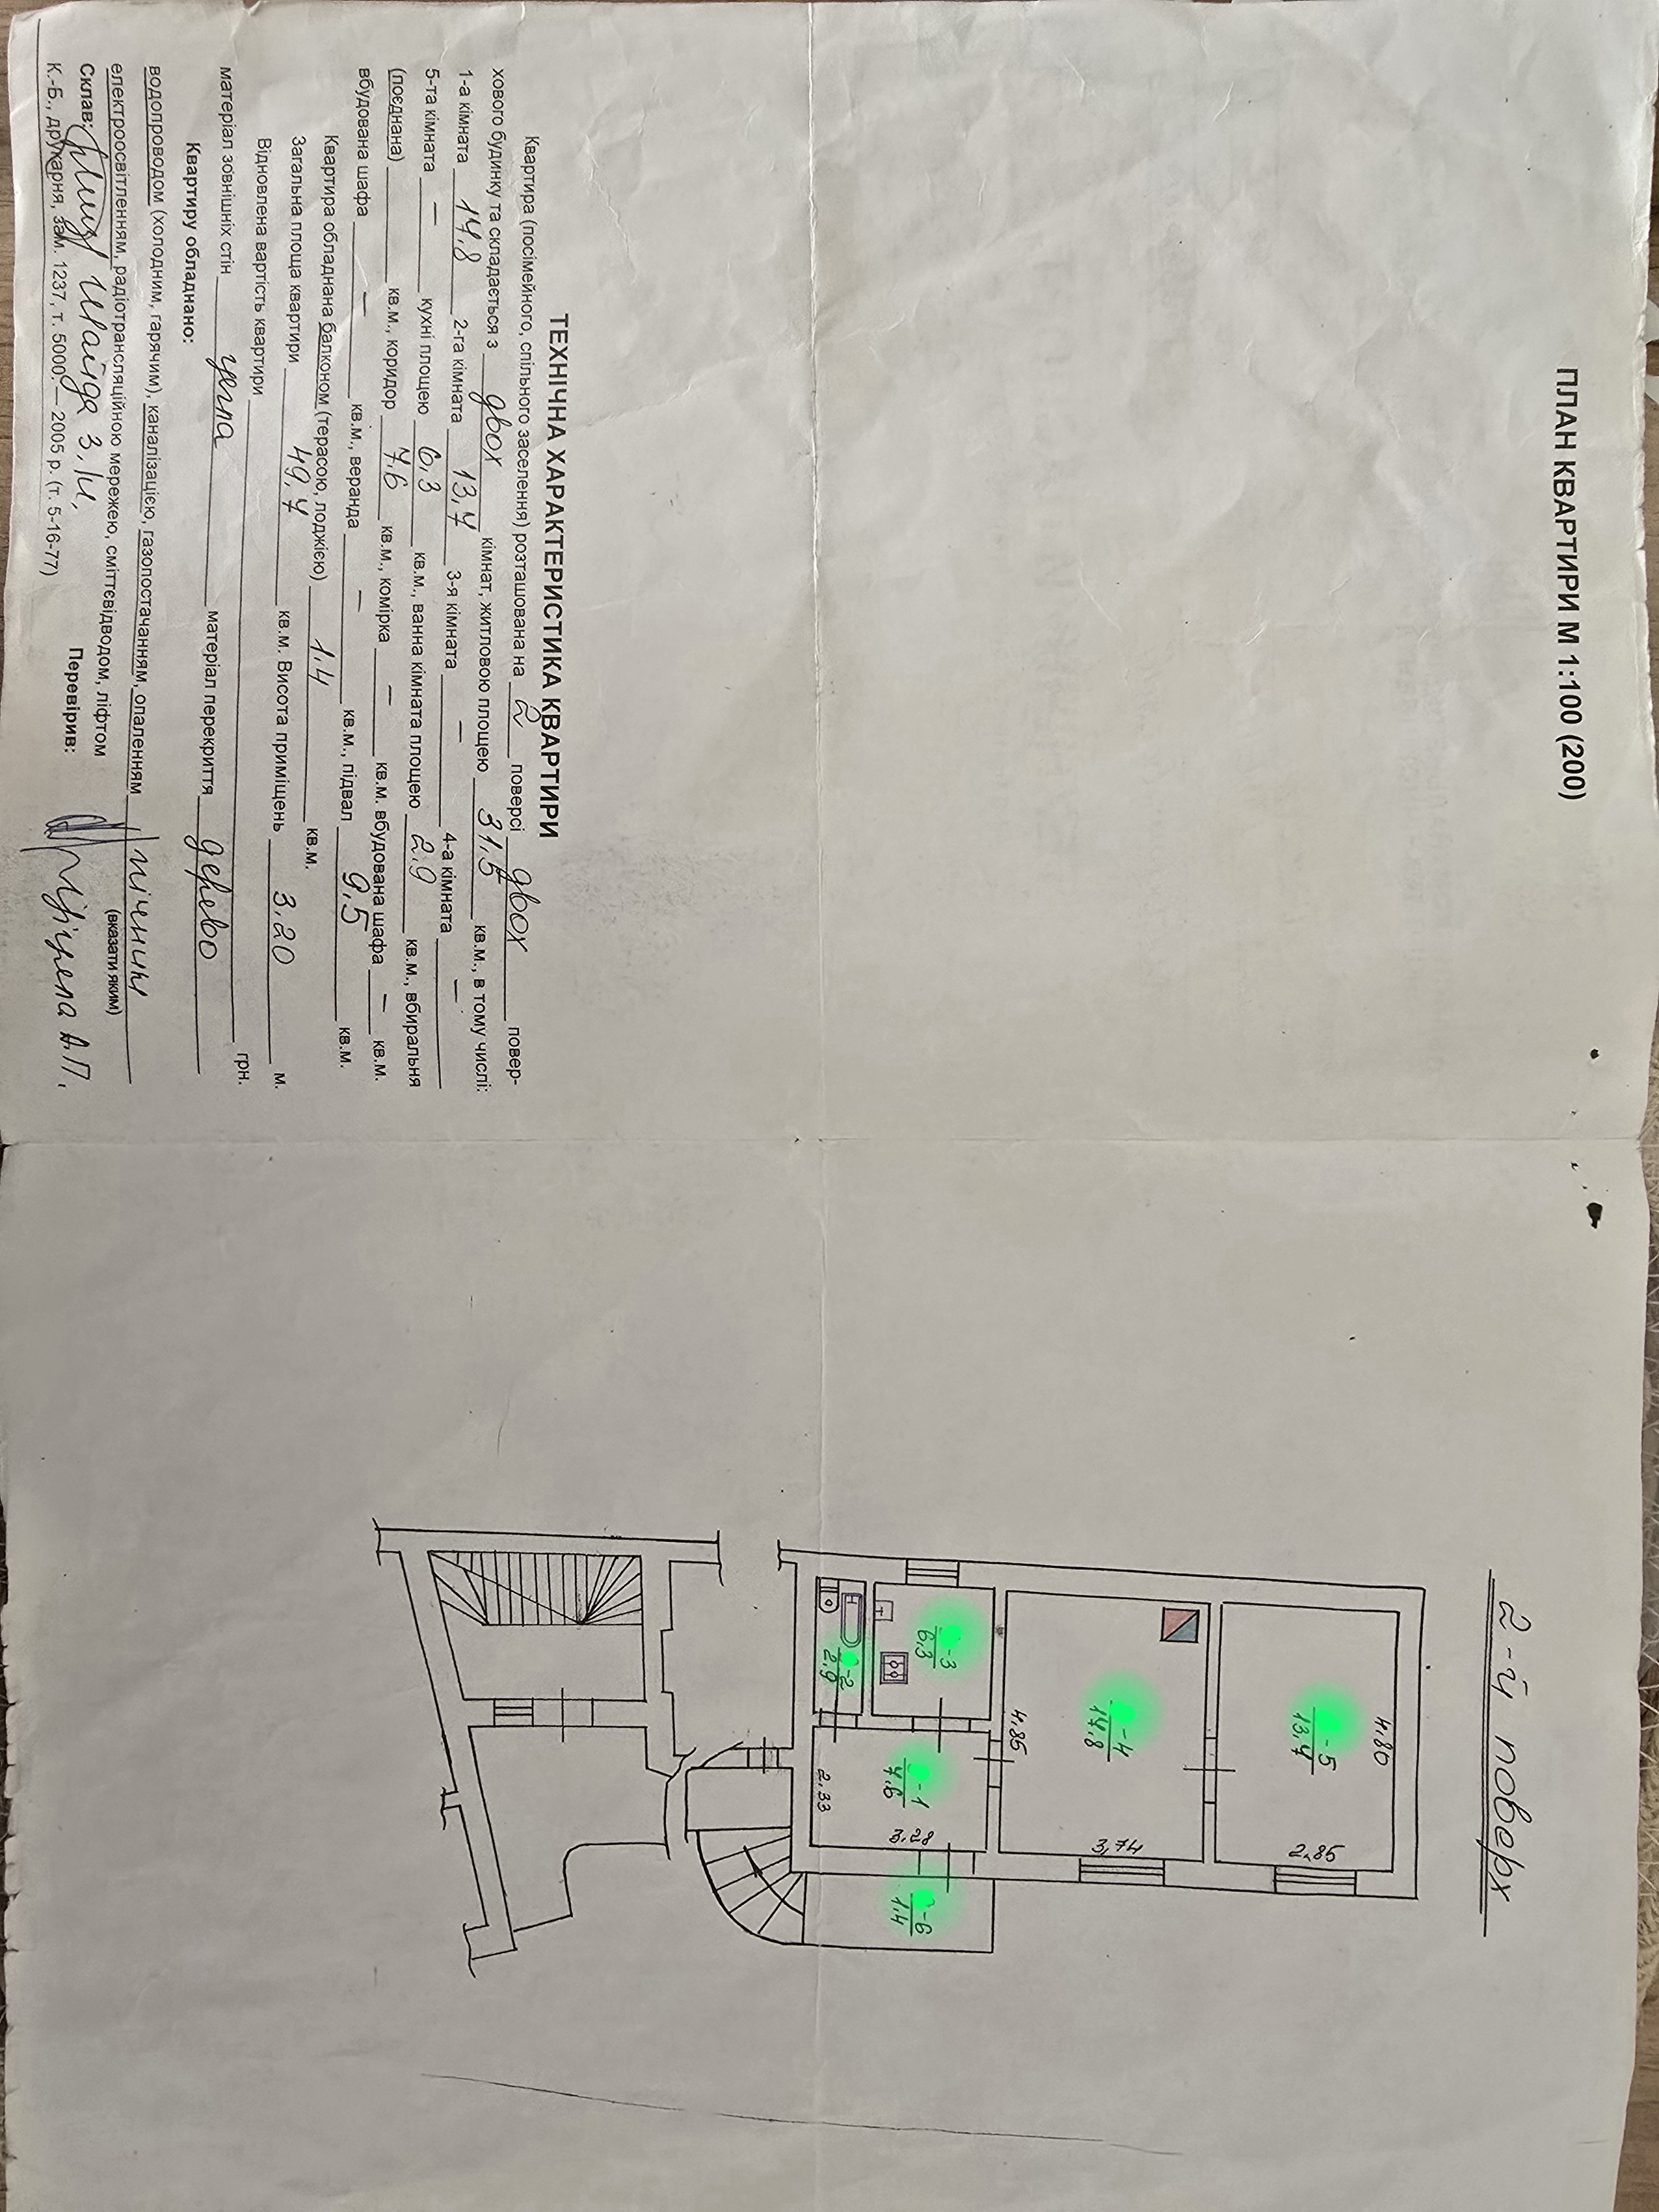 ПЛАН КВАРТИРИ М 1:100 (200)
ТЕХНІЧНА ХАРАКТЕРИСТИКА КВАРТИРИ
Квартира (посімейного, спільного заселення) розташована на 2 поверсі двох повер-
хового будинку та складається з двох кімнат, житловою площею 31,5 кв.м., в тому числі:
1-а кімната 17,8 2-га кімната 13,7 3-я кімната — 4-а кімната —
5-та кімната — кухні площею 6,3 кв.м., ванна кімната площею 2,9 кв.м., вбиральня
(поєднана) кв.м., коридор 7,6 кв.м., комірка — кв.м. вбудована шафа — кв.м.
вбудована шафа — кв.м., веранда — кв.м., підвал 9,5 кв.м.
Квартира обладнана балконом (терасою, лоджією) 1,4 кв.м.
Загальна площа квартири 49,7 кв.м. Висота приміщень 3,20 м.
Відновлена вартість квартири грн.
матеріал зовнішніх стін цегла матеріал перекриття дерево
Квартиру обладнано:
водопроводом (холодним, гарячим), каналізацією, газопостачанням, опаленням пічним
електроосвітленням, радіотрансляційною мережею, сміттєвідводом, ліфтом (вказати яким)
Склав: Шайда З.М. Перевірив:
К.-Б., друкарня, зам. 1237, т. 5000.— 2005 р. (т. 5-16-77)
2-й поверх
-5
13,7
4,80
2,85
-4
17,8
4,85
3,74
-3
6,3
-2
2,9
-1
7,6
2,33
3,28
-6
1,4